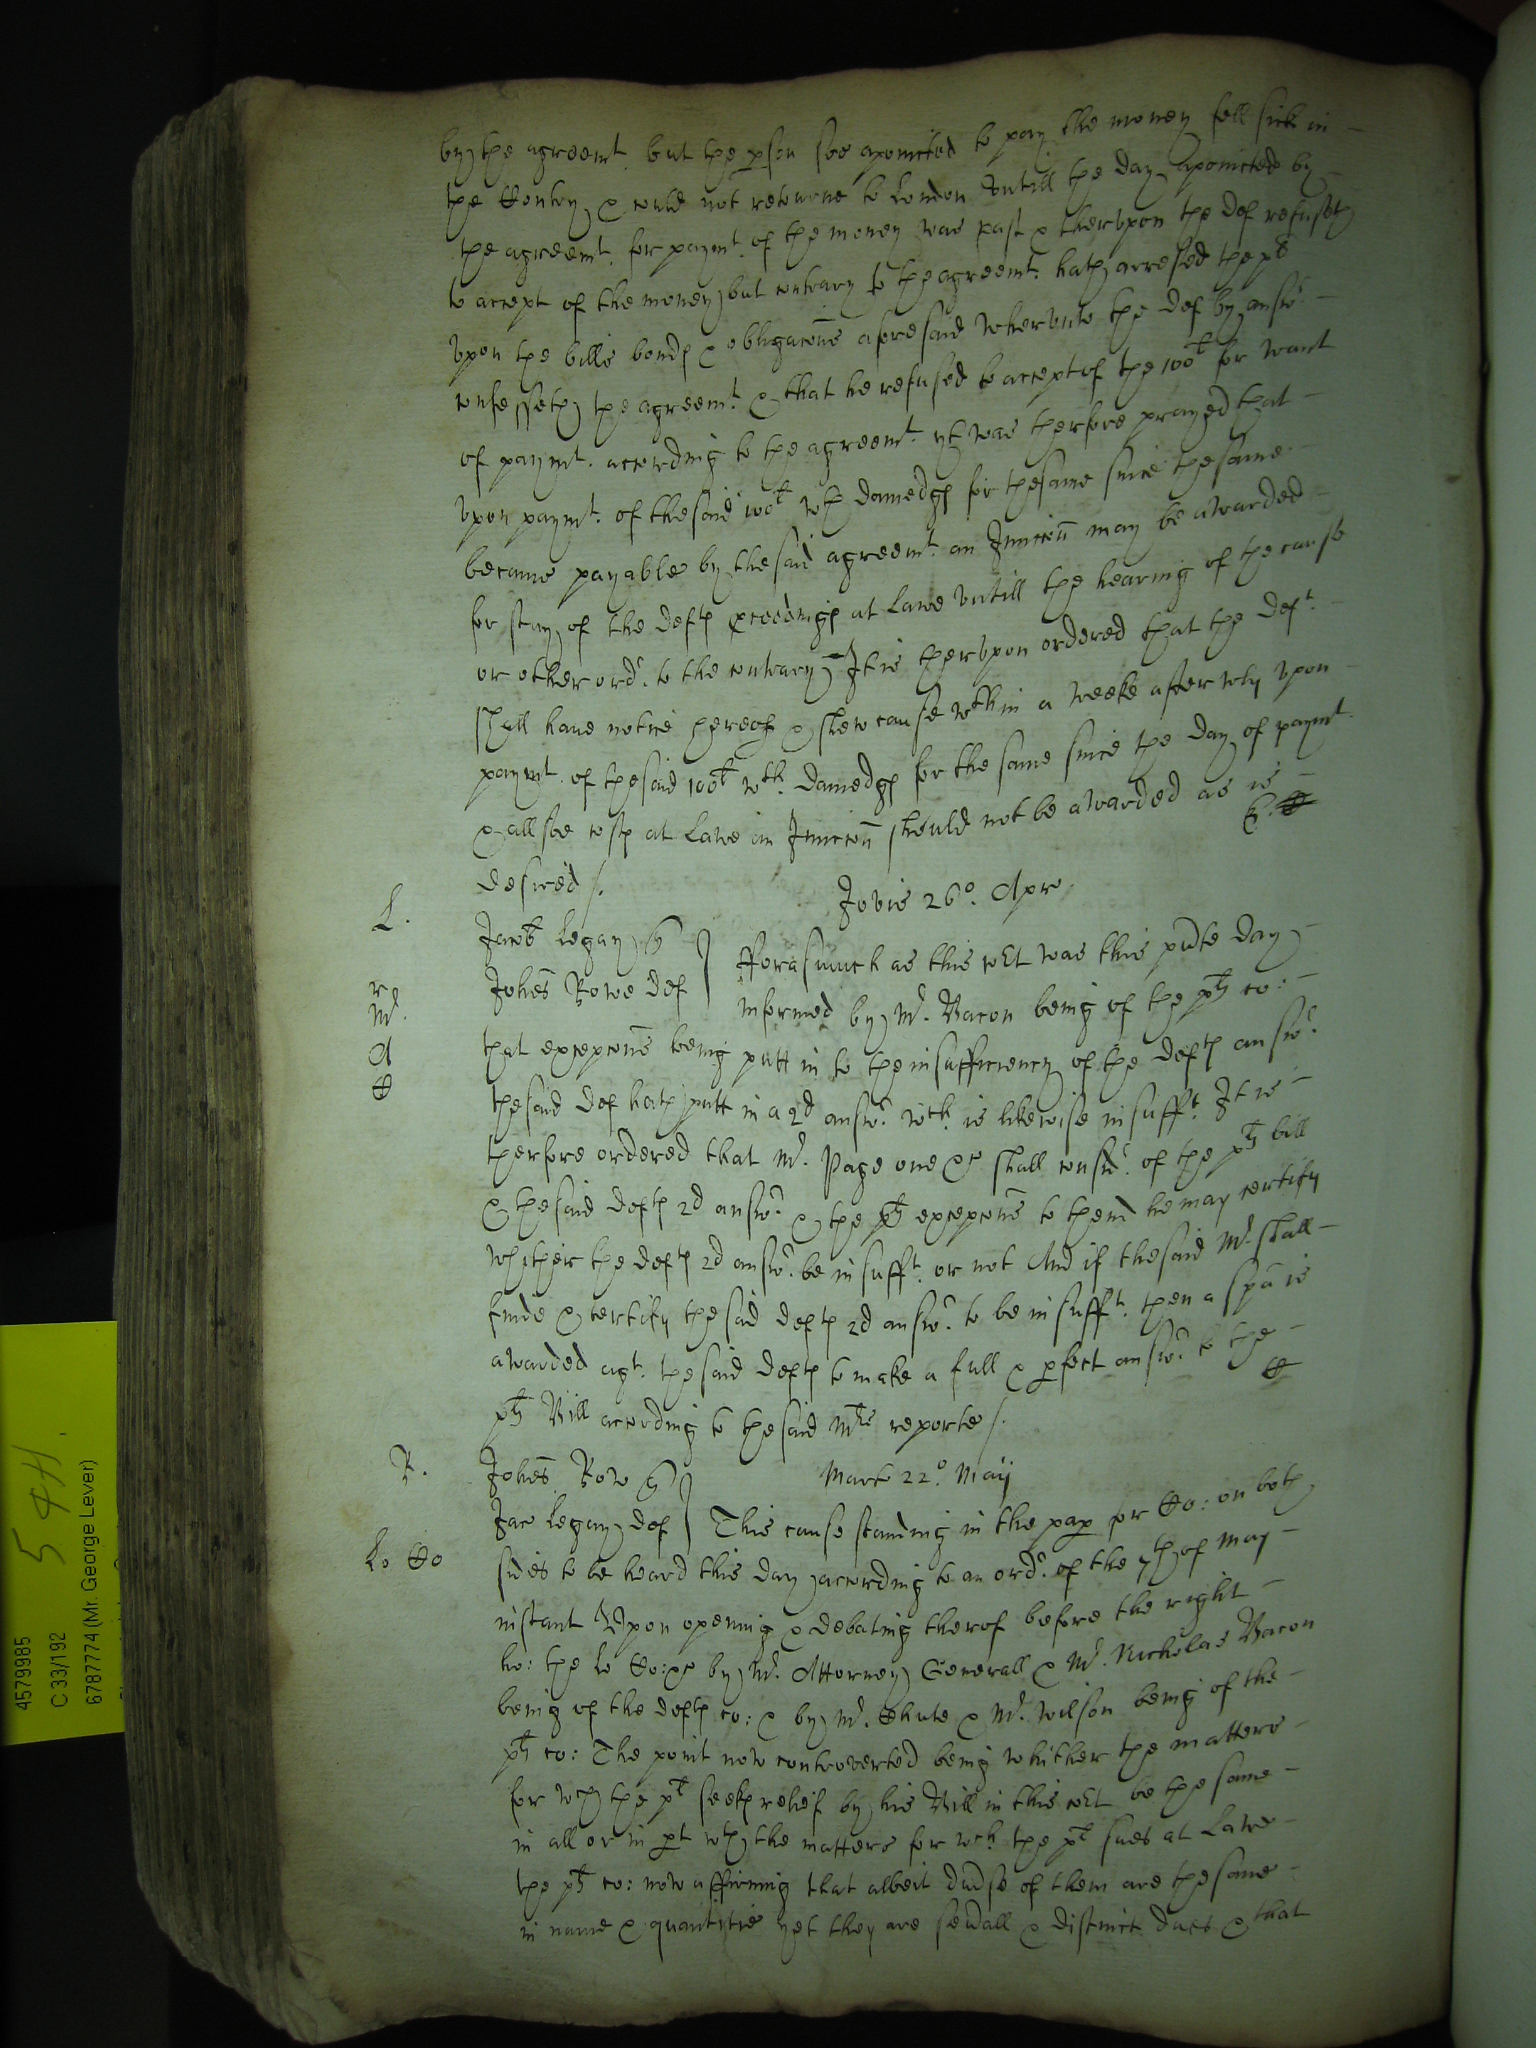 by the agreemt but the pson soe apointed to pay the money fell sick in
the Contry & could not retourne to London vntill the day apointed by
the agreemt. for paymt. of the money was past & thervpon the def refuseth
to accept of the money but contrary to the agreemt. hath arrested the plt
vpon the bills bonds & obligacons aforesaid Whervnto the def by answr
confesseth the agreemt. & that he refused to accept of the 100l for want
of paymt. according to the agreemt. yt was therfore prayed that
vpon paymt. of the said 100l wth damedgs for the same since the same
became payable by the said agreemt. an Iniuccon may be awarded
for stay of the defts proceedings at Lawe vntill the hearing of the cause
or other ordr. to the contrary It is thervpon ordered that the deft.
shall haue notice hereof & shew cause wthin a weeke after why vpon
paymt. of the said 100l wth. damedgs for the same since the day of paymt.
& allsoe costs at Lawe an Iniuccon should not be awarded as is
desired /.
Jovis 26o. Apr.
L.
Jacob Legay q
Johes Rowe def
fforasmuch as this Cot was this pnte day
r
Mr.
A
C
informed by Mr. Bacon being of the plts co:
that excepcons being putt in to the insufficiency of the defts answr.
the said def hath putt in a 2d answr. wch. is likewise insufft. It is
therfore ordered that Mr. Page one &c shall consider. of the plts bill
& the said defts 2d answr. & the plts excepcons to them he may certify
whither the defts 2d answr. be insufft. or not And if the said Mr. shall
finde & certify the said defts 2d answr. to be insufft. then a spa is
awarded agt. the said defts to make a full & pfect answr. to the
plts Bill according to the said Mrs reporte /.
R.
Johes Row q
Jac Legay def
Marte 22o. Maij
This cause standing in the pap for Co: on both
Lo Co
sides to be heard this day according to an ordr. of the 7th of May
instant Vpon opening & debating therof before the right
ho: the Lo Co: &c by Mr. Attorney Generall & Mr. Nicholas Bacon
being of the defts co: & by Mr. Chute & Mr. Wilson being of the
plts co: The point now controverted being whither the matters
for wch the plt seeks releif by his Bill in this Cot be the same
in all or in pt wth the matters for wch. the plt sues at Lawe
the plts co: now affirming that albeit divse of them are the same
in name & quantitie yet they are sevall & distinct dues & that